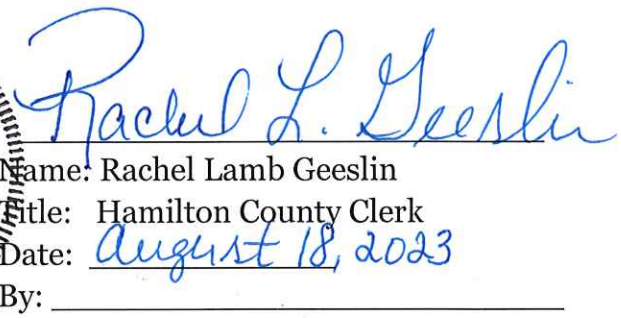 Rachel L. Geeslin
Name: Rachel Lamb Geeslin
Title: Hamilton County Clerk
Date: August 18, 2023
By: